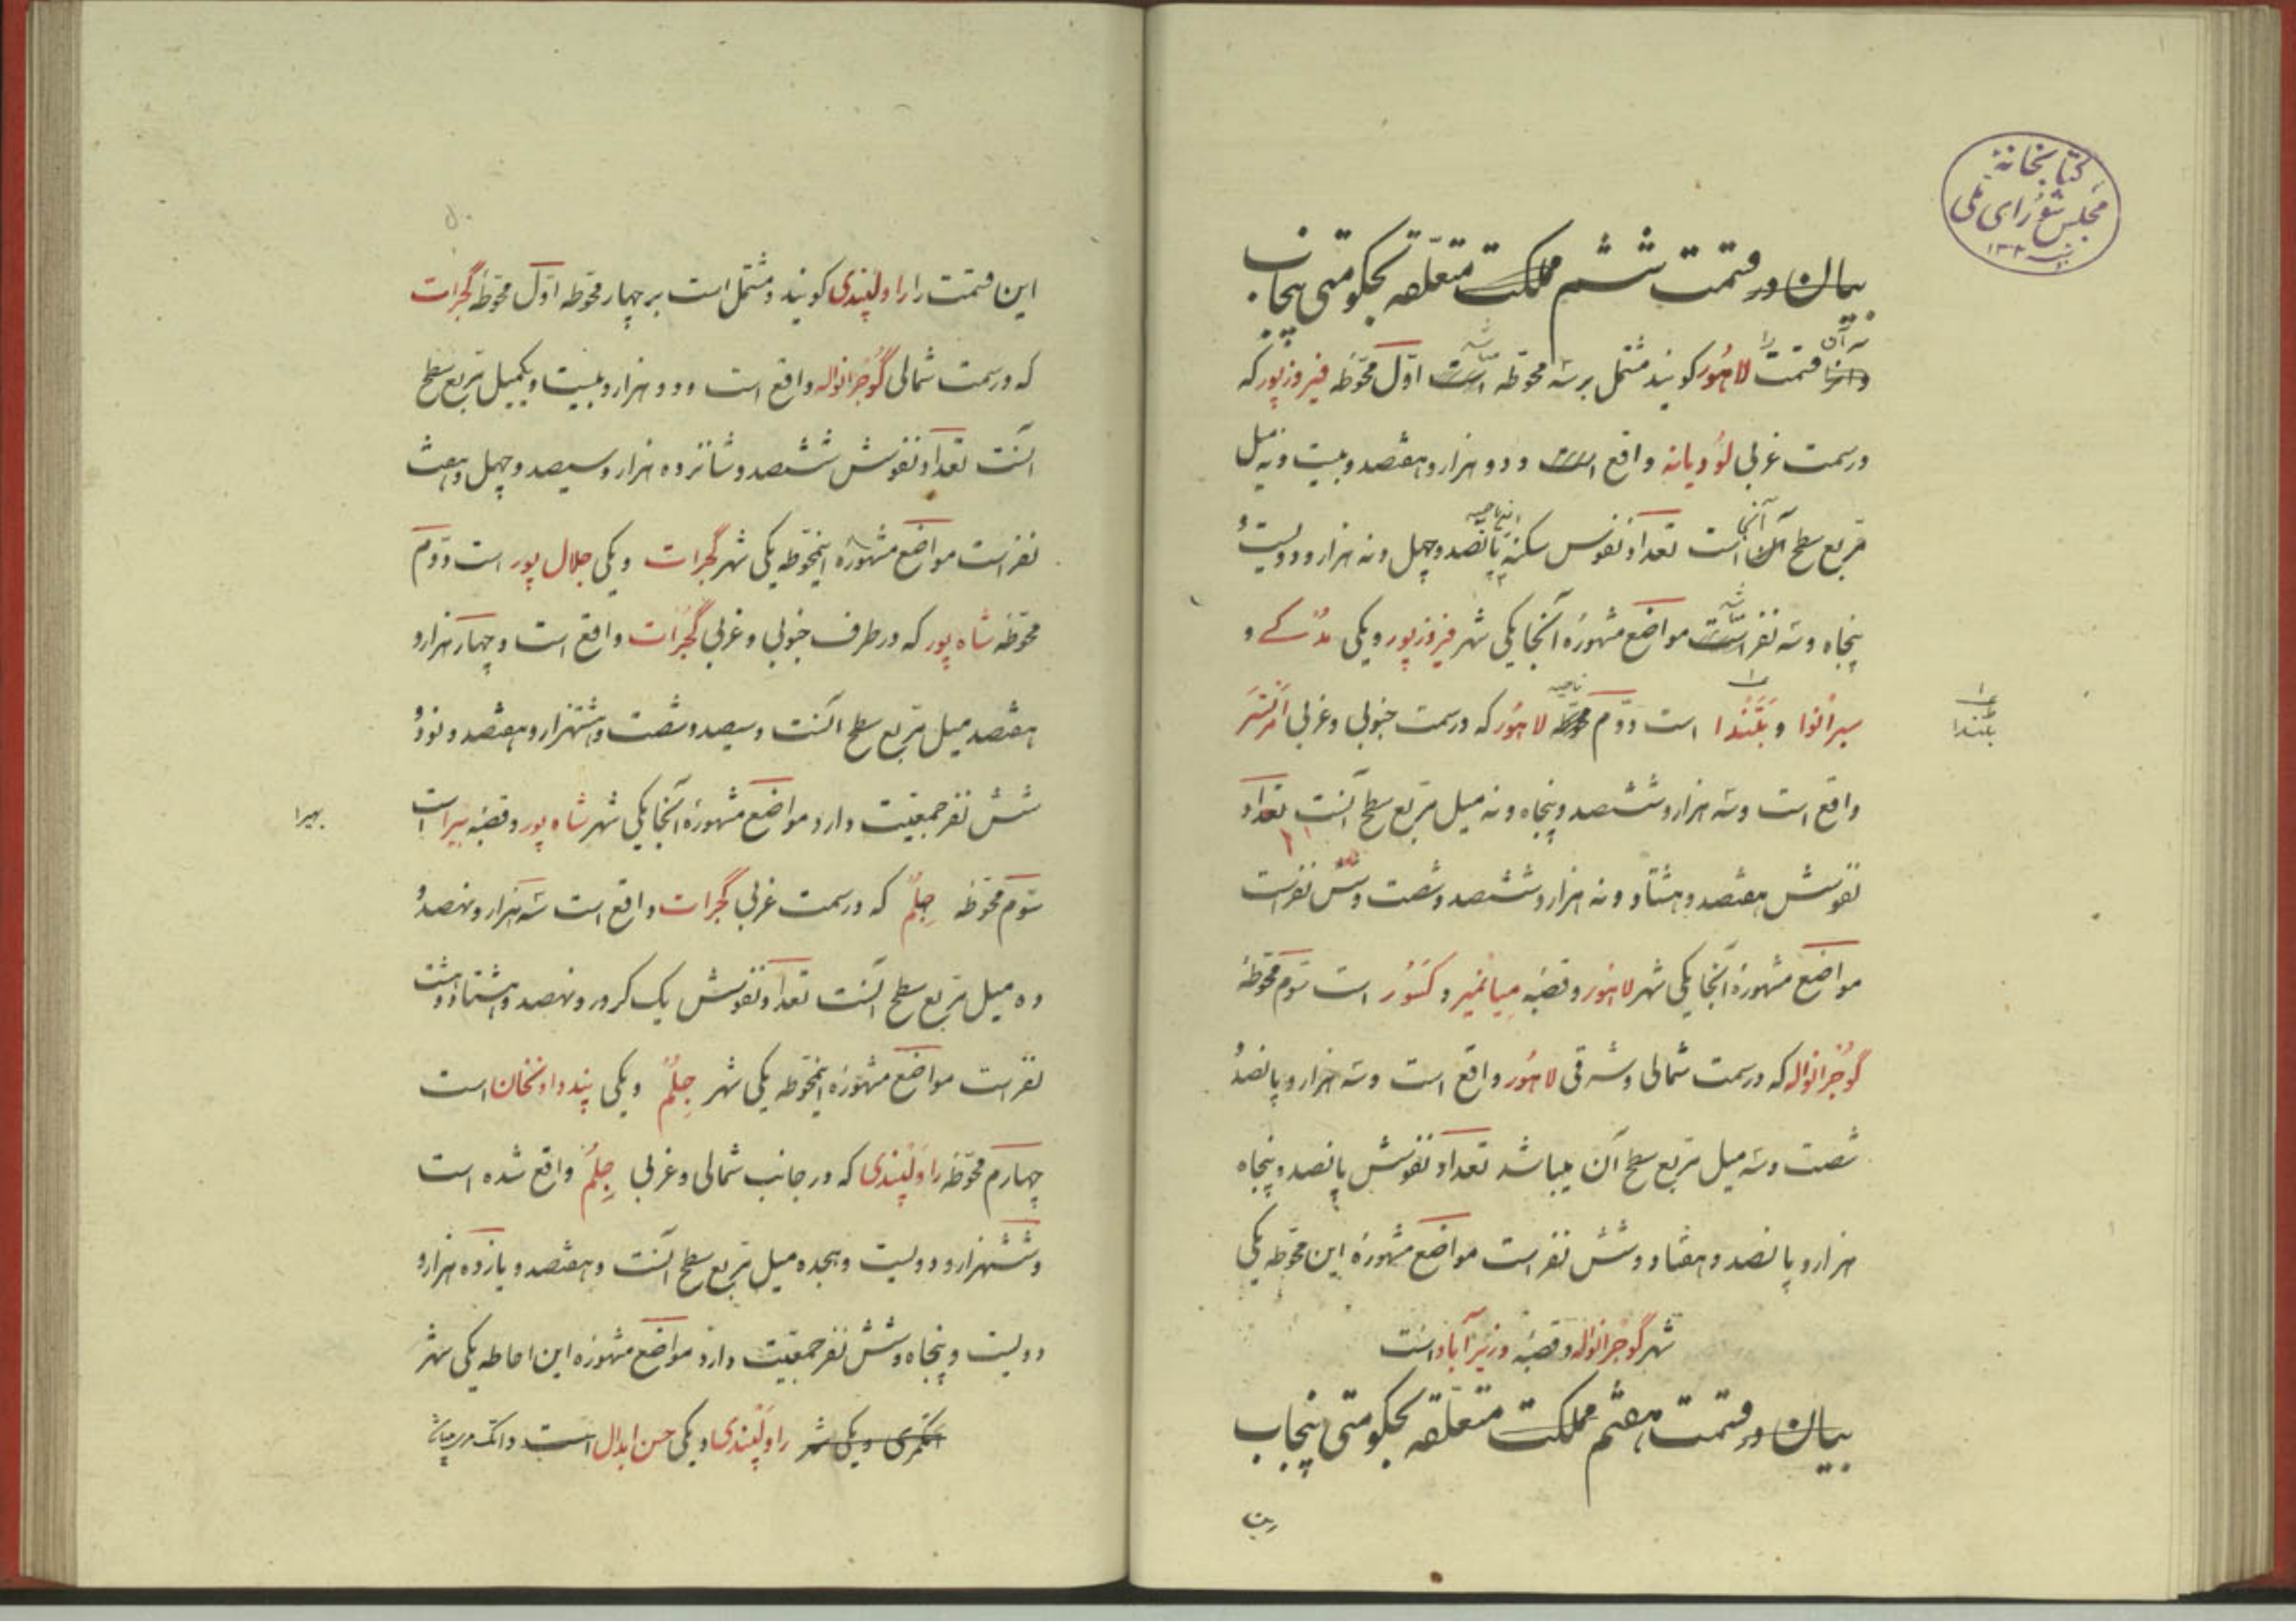 کتابخانهٔ
مجلس شورای ملی
بیان در قسمت ششم مملکت متعلقه بحکومتی پنجاب
که آن قسمت را لاهور کویند مشتمل بر سه محوّطه است اوّل محوّطه فیروزپور که
در سمت غربی لودیانه واقع است و دو هزار و هفتصد و بیست و نه میل
مربع سطح آنجا است تعداد نفوس سکنه پانصد و چهل و نه هزار و دویست و
پنجاه و سه نفر است مواضع مشهوره آنجا یکی شهر فیروزپور و یکی مدکے و
سبرانوا و بتندا است دوّم محوطه ناحیه لاهور که در سمت جنوبی و غربی امرتسر
بتندا
واقع است و سه هزار و ششصد و پنجاه و نه میل مربع سطح آنست تعداد
نفوسش هفتصد و هشتاد و نه هزار و ششصد و شصت و شش نفر است
مواضع مشهوره آنجا یکی شهر لاهور و قصبه میانمیر و کسور است سوّم محوّطه
گوجرانواله که در سمت شمالی و شرقی لاهور واقع است و سه هزار و پانصد و
شصت و سه میل مربع سطح آن میباشد تعداد نفوسش پانصد و پنجاه
هزار و پانصد و هفتاد و شش نفر است مواضع مشهوره این محوّطه یکی
شهر گوجرانواله و قصبه وزیرآباد است
بیان در قسمت هفتم مملکت متعلقه بحکومتی پنجاب
این قسمت را راولپندی کویند و مشتمل است بر چهار محوّطه اوّل محوّطه گجرات
که در سمت شمالی گوجرانواله واقع است و دو هزار و بیست و یکمیل مربع سطح
آنست تعداد نفوسش ششصد و شانزده هزار و سیصد و چهل و هفت
نفر است مواضع مشهوره اینمحوّطه یکی شهر گجرات و یکی جلال پور است دوّم
محوّطه شاه پور که در طرف جنوبی و غربی گجرات واقع است و چهار هزار و
هفتصد میل مربع سطح آنست و سیصد و شصت و هشتهزار و هفتصد و نود و
شش نفر جمعیّت دارد مواضع مشهوره آنجا یکی شهر شاه پور و قصبه بیرا است
بهیرا
سوّم محوّطه جِلَم که در سمت غربی گجرات واقع است سه هزار و نهصد و
ده میل مربع سطح آنست تعداد نفوسش یک کرور و نهصد و هشتاد و هشت
نفر است مواضع مشهوره اینمحوّطه یکی شهر جِلَم و یکی پنددادنخان است
چهارم محوّطه راولپندی که در جانب شمالی و غربی جِلَم واقع شده است
و ششهزار و دویست و هجده میل مربع سطح آنست و هفتصد و یازده هزار و
دویست و پنجاه و شش نفر جمعیّت دارد مواضع مشهوره این احاطه یکی شهر
و یکی شهر راولپندی و یکی حسن ابدال است